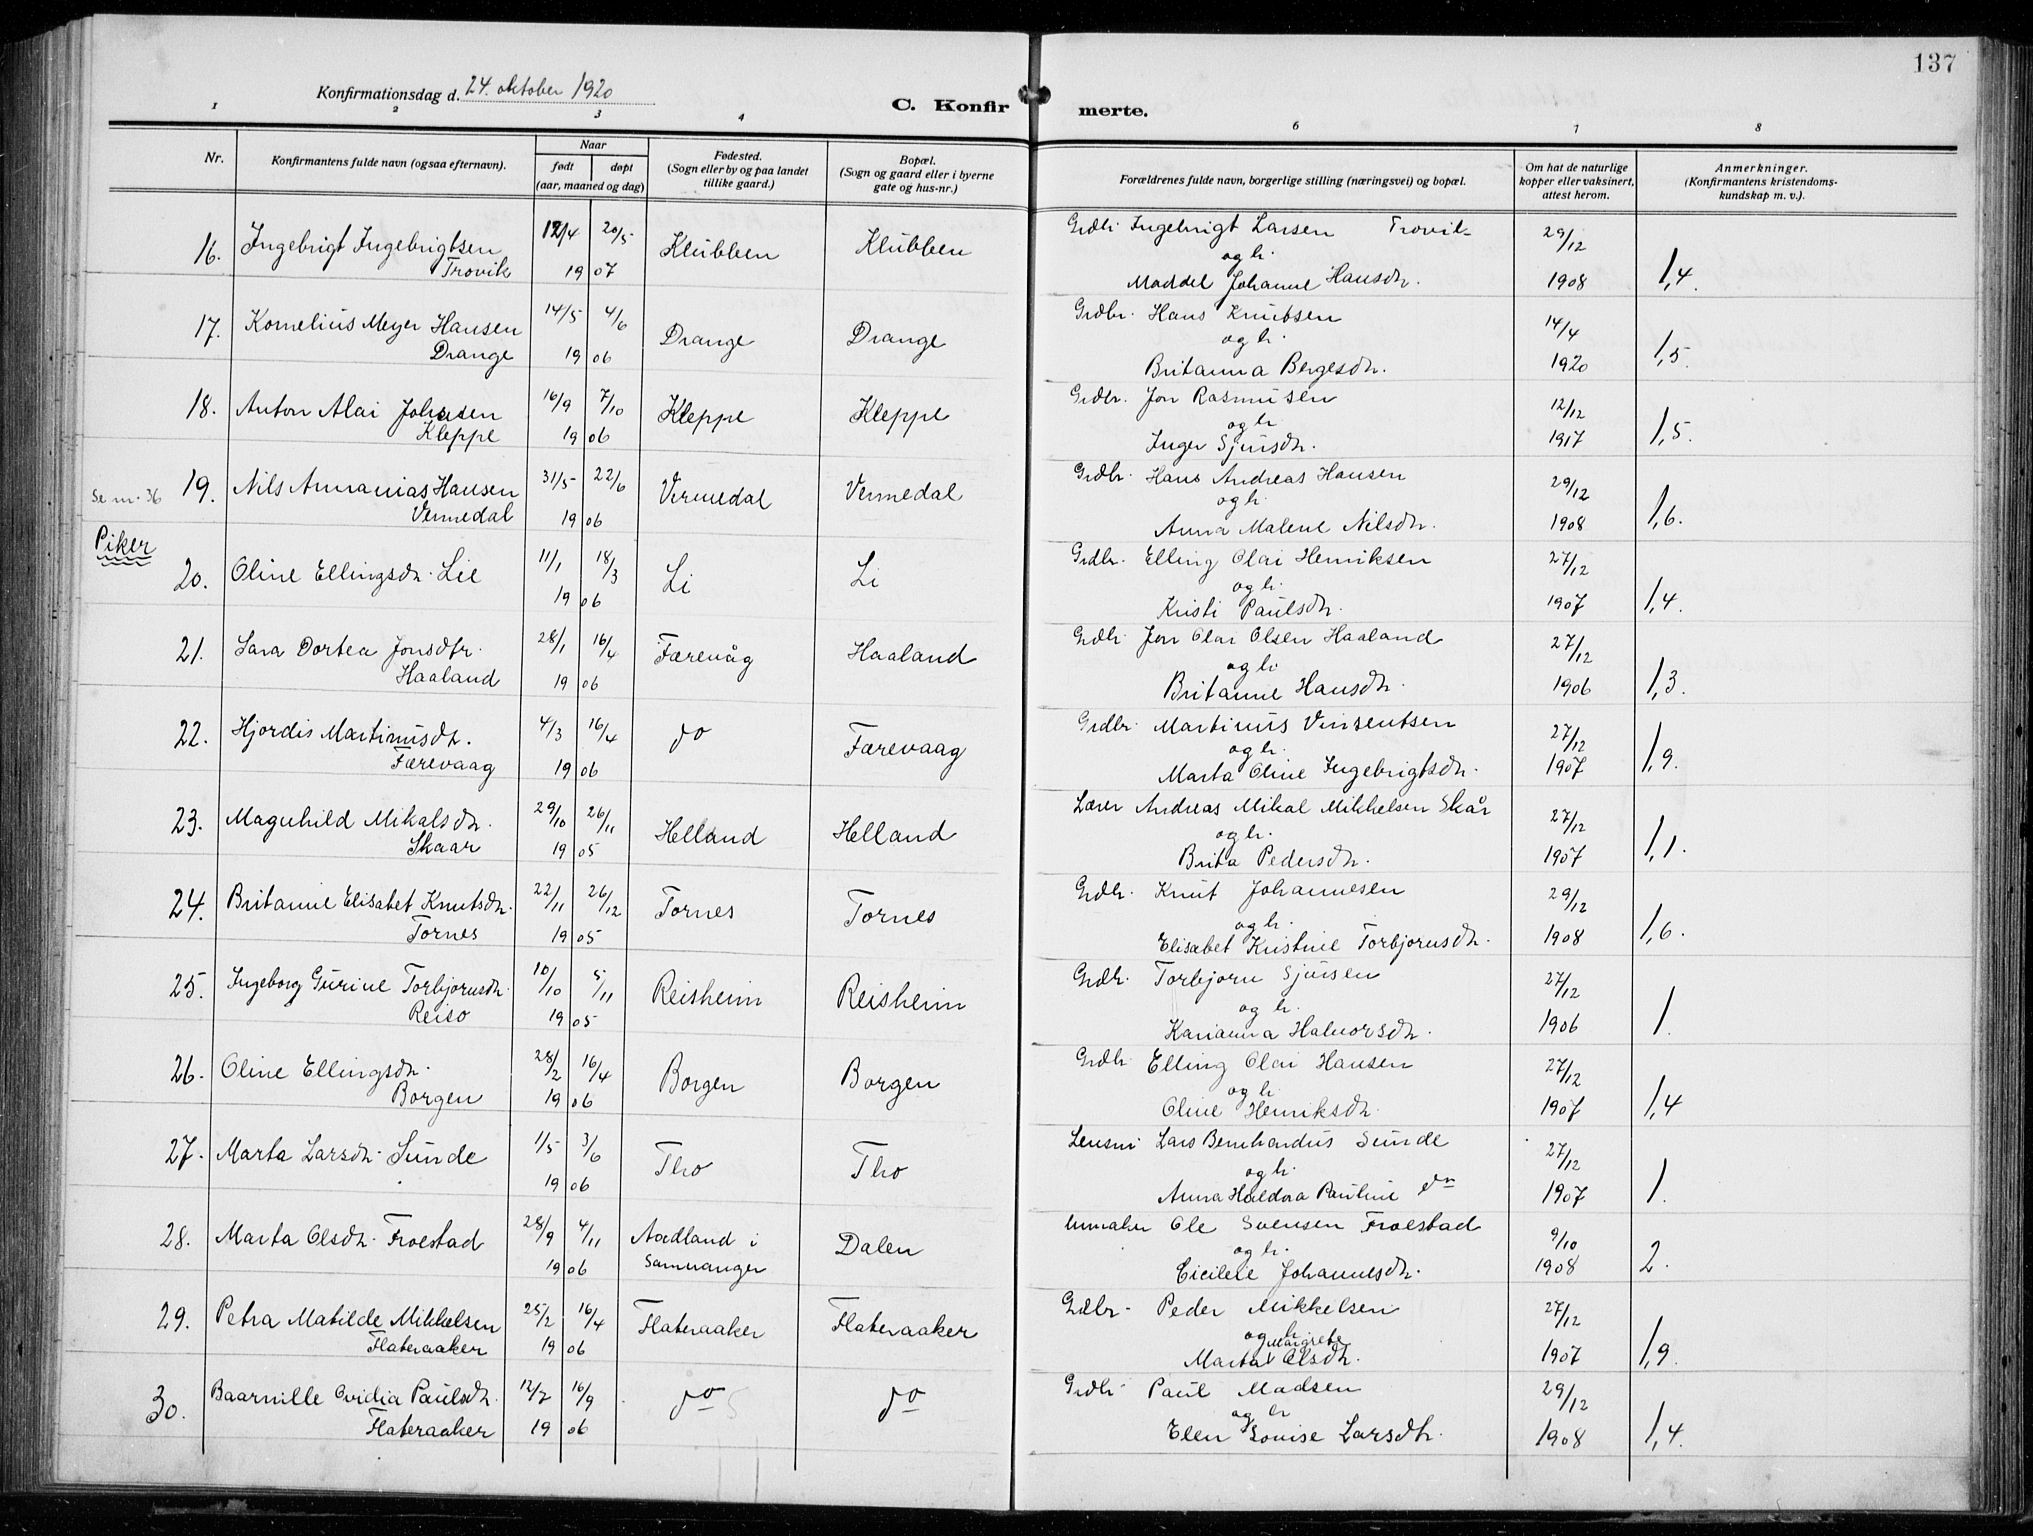 137
Konfirmationsdag d. 24. oktober 1920
C. Konfirmerte.
1 2 3 4 6 7 8
Nr.
Konfirmantens fulde navn (ogsaa efternavn).
Naar
født døpt
(aar, maaned og dag)
Fødested.
(Sogn eller by og paa landet
tillike gaard.)
Bopæl.
(Sogn og gaard eller i byerne
gate og hus-nr.)
Forældrenes fulde navn, borgerlige stilling (næringsvei) og bopæl.
Om hat de naturlige
kopper eller vaksinert,
attest herom.
Anmerkninger.
(Konfirmantens kristendoms-
kundskap m. v.).
16. Ingebrigt Ingebrigtsen 12/4 20/5 Klubben Klubben Grdbr. Ingebrigt Larsen Trovik 29/12
Trovik 19 07 og h. 1,4.
Maddel Johanne Hansdtr. 1908
17. Kornelius Meyer Hansen 14/5 4/6 Drange Drange Grdbr. Hans Knutsen 14/4
Drange 19 06 og h. 1,5.
Britanna Bergesdtr. 1920
18. Anton Alai Johnsen 16/9 7/10 Kleppe Kleppe Grdbr. Jon Rasmussen 12/12
Kleppe 19 06 og h. 1,5.
Inger Sjursdtr. 1917
Se nr. 36 19. Nils Annanias Hansen 31/5 22/6 Vernedal Vernedal Grdbr. Hans Andreas Hansen 29/12
Vernedal 19 06 og h. 1,6.
Anna Malene Nilsdtr. 1908
Piker
20. Oline Ellingsdtr. Lie 11/1 18/3 Li Li Grdbr. Elling Olai Henriksen 27/12
19 06 og h. 1,4.
Kristi Paulsdtr. 1907
21. Sara Dortea Jonsdtr. 28/1 16/4 Færevåg Haaland Grdbr. Jon Olai Olsen Haaland 27/12
Haaland 19 06 og h. 1,3.
Britanne Hansdtr. 1906
22. Hjordis Martinusdtr. 4/3 16/4 do Færevaag Grdbr. Martinus Vinsentsen 27/12
Færevaag 19 06 og h. 1,9.
Marta Oline Ingebrigtsdtr. 1907
23. Magnhild Mikalsdtr. 29/10 26/11 Helland Helland Lærer Andreas Mikal Mikkelsen Skår 27/12
Skaar 19 05 og h. 1,1.
Brita Pedersdtr. 1907
24. Britanne Elisabet Knutsdtr. 22/11 26/12 Tornes Tornes Grdbr. Knut Johannesen 29/12
Tornes 19 05 og h. 1,6.
Elisabet Kristine Torbjornsdtr. 1908
25. Ingeborg Gurine Torbjornsdtr. 10/10 5/11 Reisheim Reisheim Grdbr. Torbjorn Sjursen 27/12
Reiso 19 05 og h. 1.
Karianna Halvorsdtr. 1906
26. Oline Ellingsdtr. 28/2 16/4 Borgen Borgen Grdbr. Elling Olai Hansen 27/12
Borgen 19 06 og h. 1,4
Oline Henriksdtr. 1907
27. Marta Larsdtr. Sunde 1/5 3/6 Tho Tho Lensm. Lars Bernhardus Sunde 27/12
19 06 og h. 1.
Anna Haldora Pauline do 1907
28. Marta Olsdtr. Froestad 28/9 4/11 Aadland i Dalen Urmaker Ole Svensen Froestad 9/10
19 06 Samnanger og h. 2.
Cicilie Johannesdtr. 1908
29. Petra Matilde Mikkelsen 25/2 16/4 Flateraaker Flateraaker Grdbr. Peder Mikkelsen 27/12
Flateraaker 19 06 og h. 1,9.
Marta Margrete Olsdtr. 1907
30. Baarnille Ovidia Paulsdtr. 12/7 16/9 do do Grdbr. Paul Madsen 29/12
Flateraaker 19 06 og h. 1,4.
Elen Lovise Larsdtr. 1908